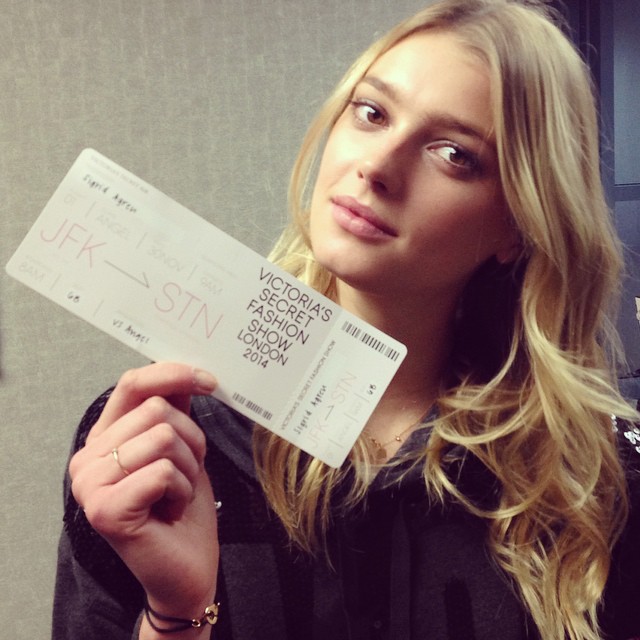 Sigrid Agren
ANGEL
30NOV
9AM
JFK → STN
8AM
6B
VS Angel
VICTORIA'S
SECRET
FASHION
SHOW
LONDON
2014
VICTORIA'S SECRET FASHION SHOW
Sigrid Agren
JFK → STN
6B